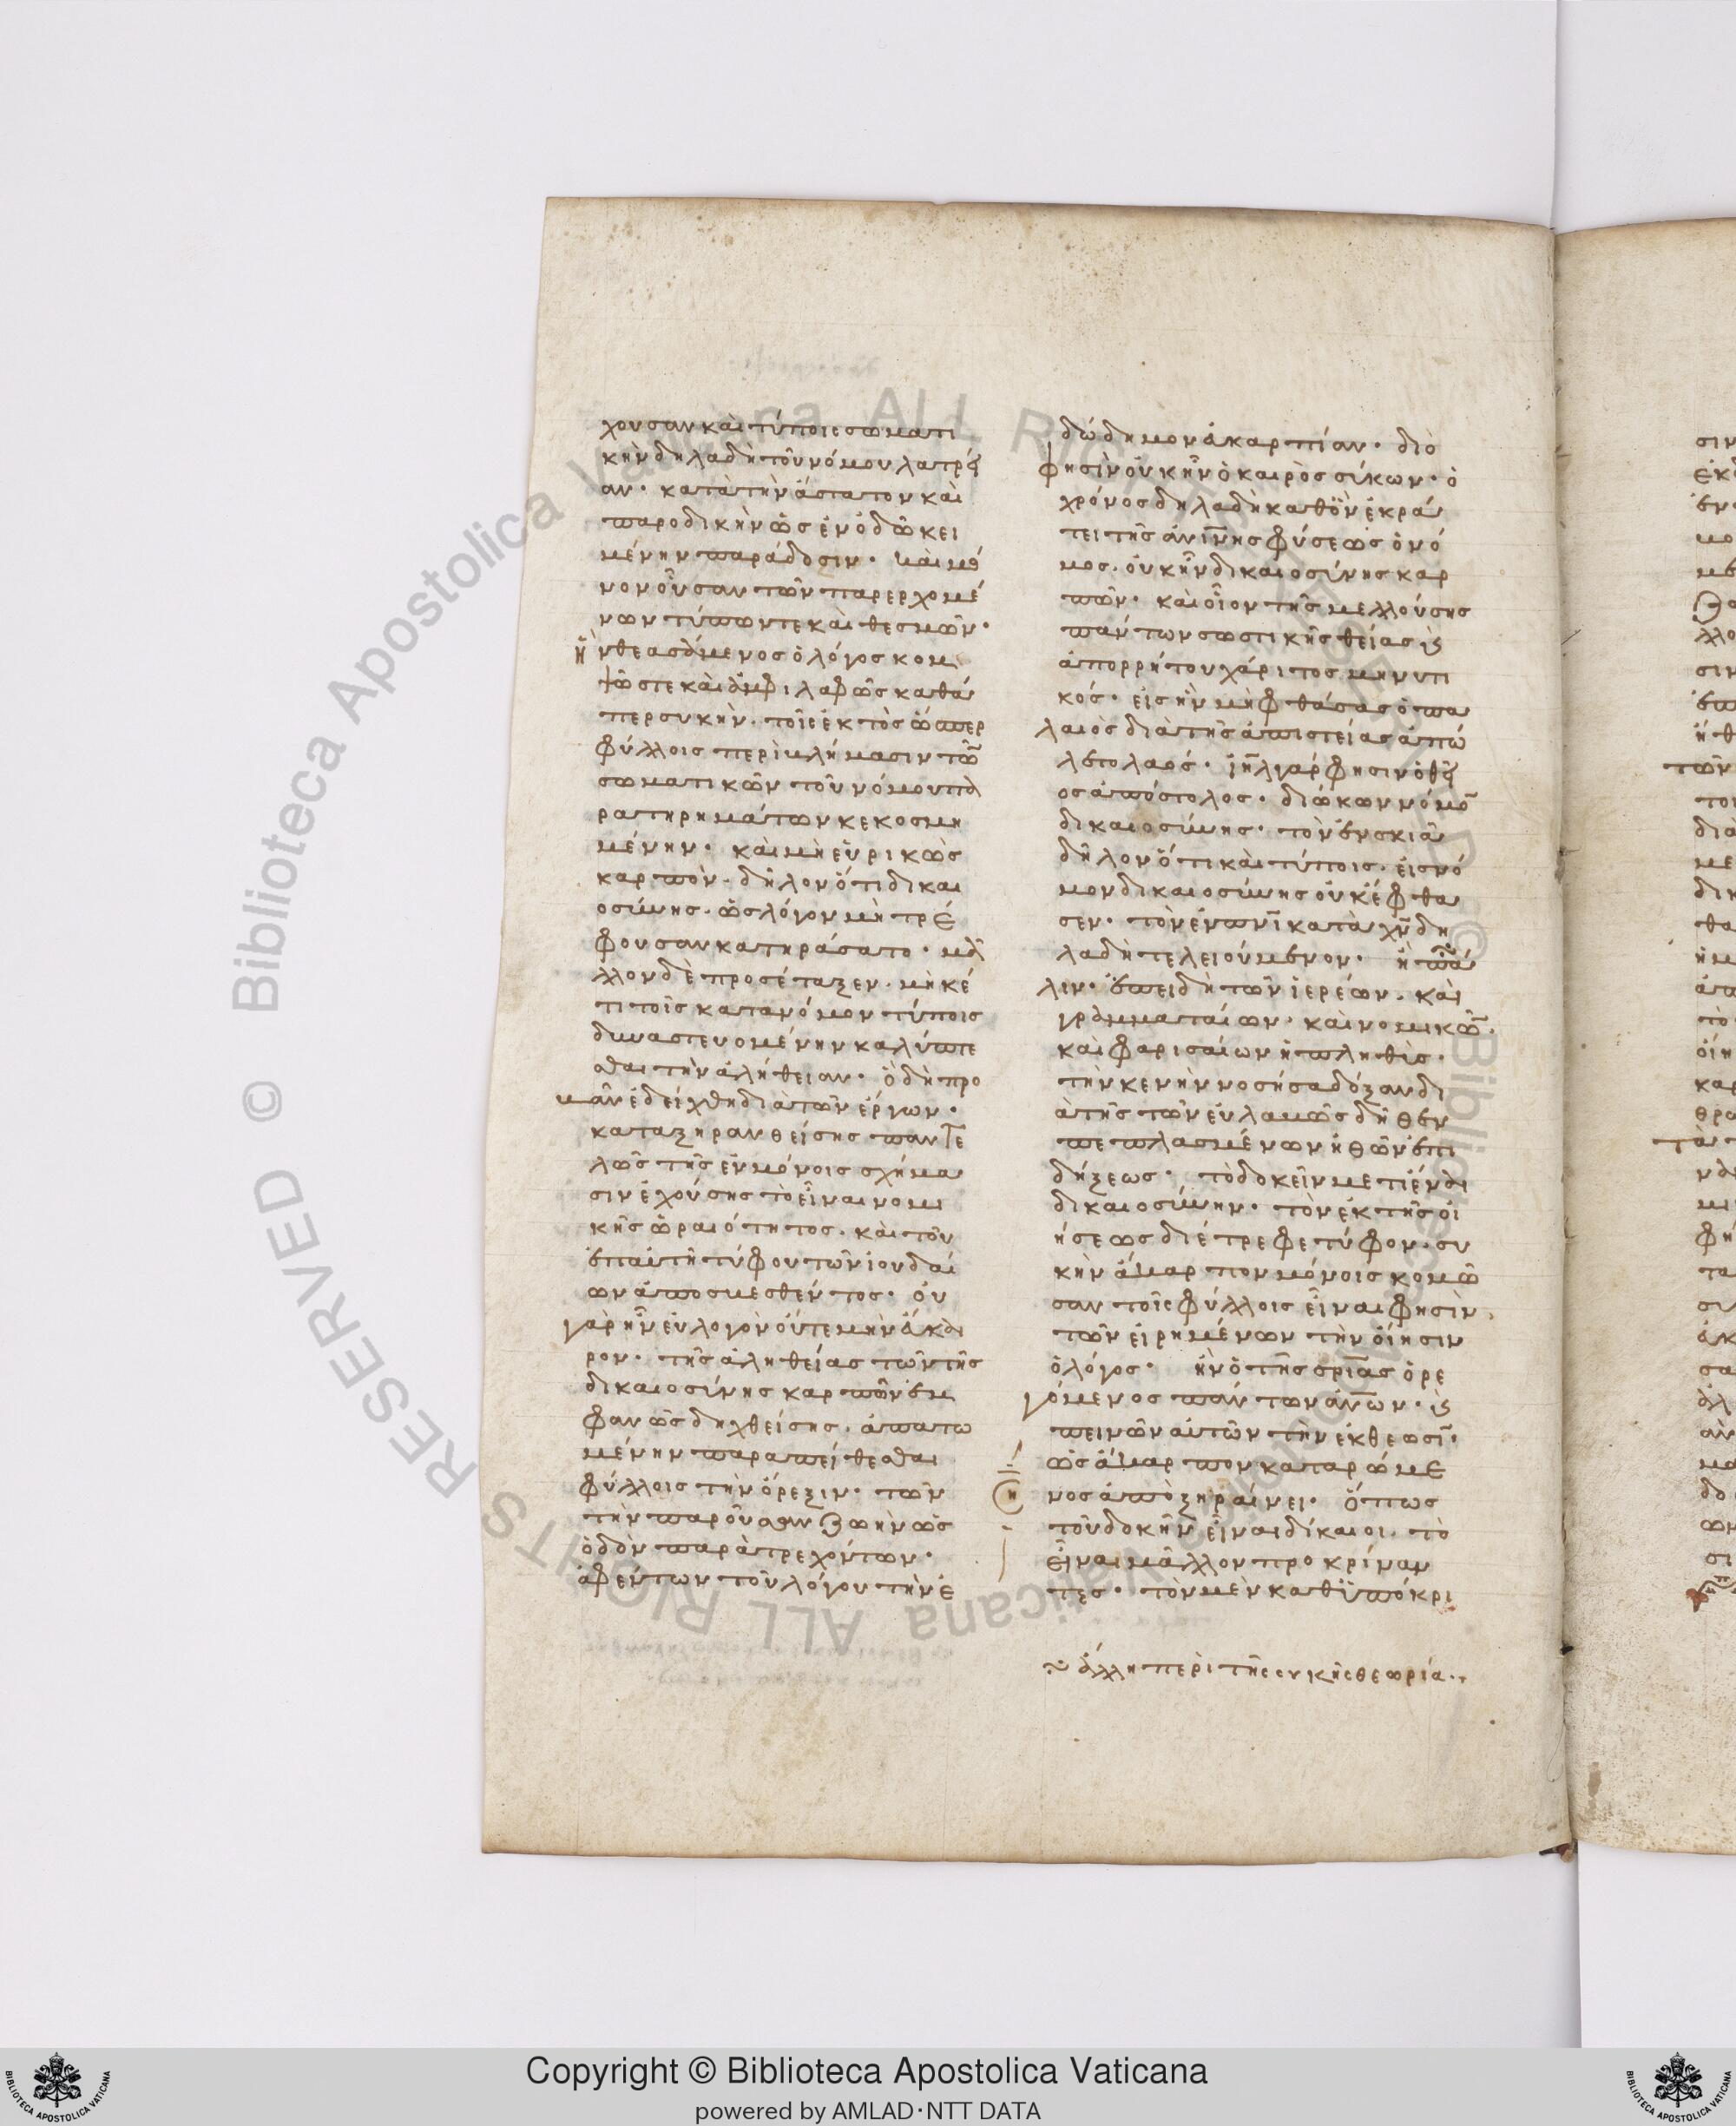 χουσαν καὶ τύποις σωματι
κὴν δηλαδὴ τοῦ νόμου λατρεί
αν· κατὰ τὴν ἄστατον καὶ
παροδικὴν ὡς ἐν ὁδῶ κει
μένην παράδοσιν· καὶ μό
νον οὖσαν τῶν παρερχομέ
νων τύπων τε καὶ θεσμῶν·
ἣν θεασάμενος ὁ λόγος κομ
ψῶς τε καὶ ἀμφιλαφῶς καθά
περ συκὴν· τοῖς ἐκτὸς ὥσπερ
φύλλοις περιβλήμασιν τῶν
σωματικῶν τοῦ νόμου πα
ρατηρημάτων κεκοσμη
μένην· καὶ μὴ εὑρικὼς
καρπὸν· δῆλον ὅτι δικαι
οσύνης· ὡς λόγον μὴ τρέ
φουσαν κατηράσατο· μᾶ
λλον δὲ προσέταξεν· μηκέ
τι τοῖς κατὰ νόμον τύποις
δυναστευομένην καλύπτε
σθαι τὴν ἀλήθειαν· ὃ δὴ προ
βὰν ἐδείχθη διὰ τῶν ἔργων·
καταξηρανθείσης παντε
λῶς τῆς ἐν μόνοις σχήμα
σιν ἐχούσης τὸ εἶναι νομι
κῆς ὡραιότητος· καὶ τοῦ
ἐπ αὐτῆ τύφου τῶν ἰουδαί
ων ἀποσβεσθέντος· οὐ
γὰρ ἦν εὔλογον οὔτε μὴν ἄκαι
ρον· τῆς ἀληθείας τῶν τῆς
δικαιοσύνης καρπῶν ἐμ
φανῶς δηχθείσης· ἀπατω
μένην παραπείθεσθαι
φύλλοις τὴν ὄρεξιν· τῶν
τὴν παροῦσαν ζωὴν ὡς
ὁδὸν παρατρεχόντων·
ἀφέντων τοῦ λόγου τὴν ἐ
δώδημον ἀκαρπίαν· διὸ
φησὶν οὐκ ἦν ὁ καιρὸς σύκων· ὁ
χρόνος δηλαδὴ καθ ὃν ἐκρά
τει τῆς ἀνίνης φύσεως ὁ νό
μος· οὐκ ἦν δικαιοσύνης καρ
πῶν· καὶ οἷον τῆς μελλούσης
πάντων σωστικῆς θείας κ
ἀπορρήτου χάριτος μηνυτι
κός· εἰς ἣν μὴ φθάσας ὁ πα
λαιὸς διὰ τῆς ἀπιστείας ἀπώ
λετο λαός· ἰηλ γάρ φησιν ὁ θεῖ
ος ἀπόστολος· διώκων νόμον
δικαιοσύνης· τὸν ἐν σκιᾶ
δῆλον ὅτι καὶ τύποις· εἰς νό
μον δικαιοσύνης οὐκ ἔφθα
σεν· τὸν ἐν πνι κατὰ χν δη
λαδὴ τελειούμενον· ἢ πά
λιν· ἐπειδὴ τῶν ἱερέων· καὶ
γραμματαίων· καὶ νομικῶν·
καὶ φαρισαίων ἡ πληθὺς·
τὴν κενὴν νοσήσα δόξαν δι
ὰ τῆς τῶν εὐλαβῶς δῆθεν
πεπλασμένων ἠθῶν ἐπι
δήξεως· τὸ δοκεῖν μετιέναι
δικαιοσύνην· τὸν ἐκ τῆς οἰ
ήσεως διέτρεφε τύφον· συ
κὴν ἄκαρπον μόνοις κομῶ
σαν τοῖς φύλλοις εἶναι φησὶν
τῶν εἰρημένων τὴν οἴησιν
ὁ λόγος· ἣν ὁ τῆς σριας ὀρε
γόμενος πάντων ἀνων· κ
πεινῶν αὐτῶν τὴν ἐκθέωσιν·
ὡς ἄκαρπον καταρώμε
νος ἀποξηραίνει· ὅπως
τοῦ δοκῆν εἶναι δίκαιοι· τὸ
εἶναι μᾶλλον προκρίναν
τες· τὸν μὲν καθ ὑπόκρι
ἄλλη περὶ τῆς συκῆς θεωρία